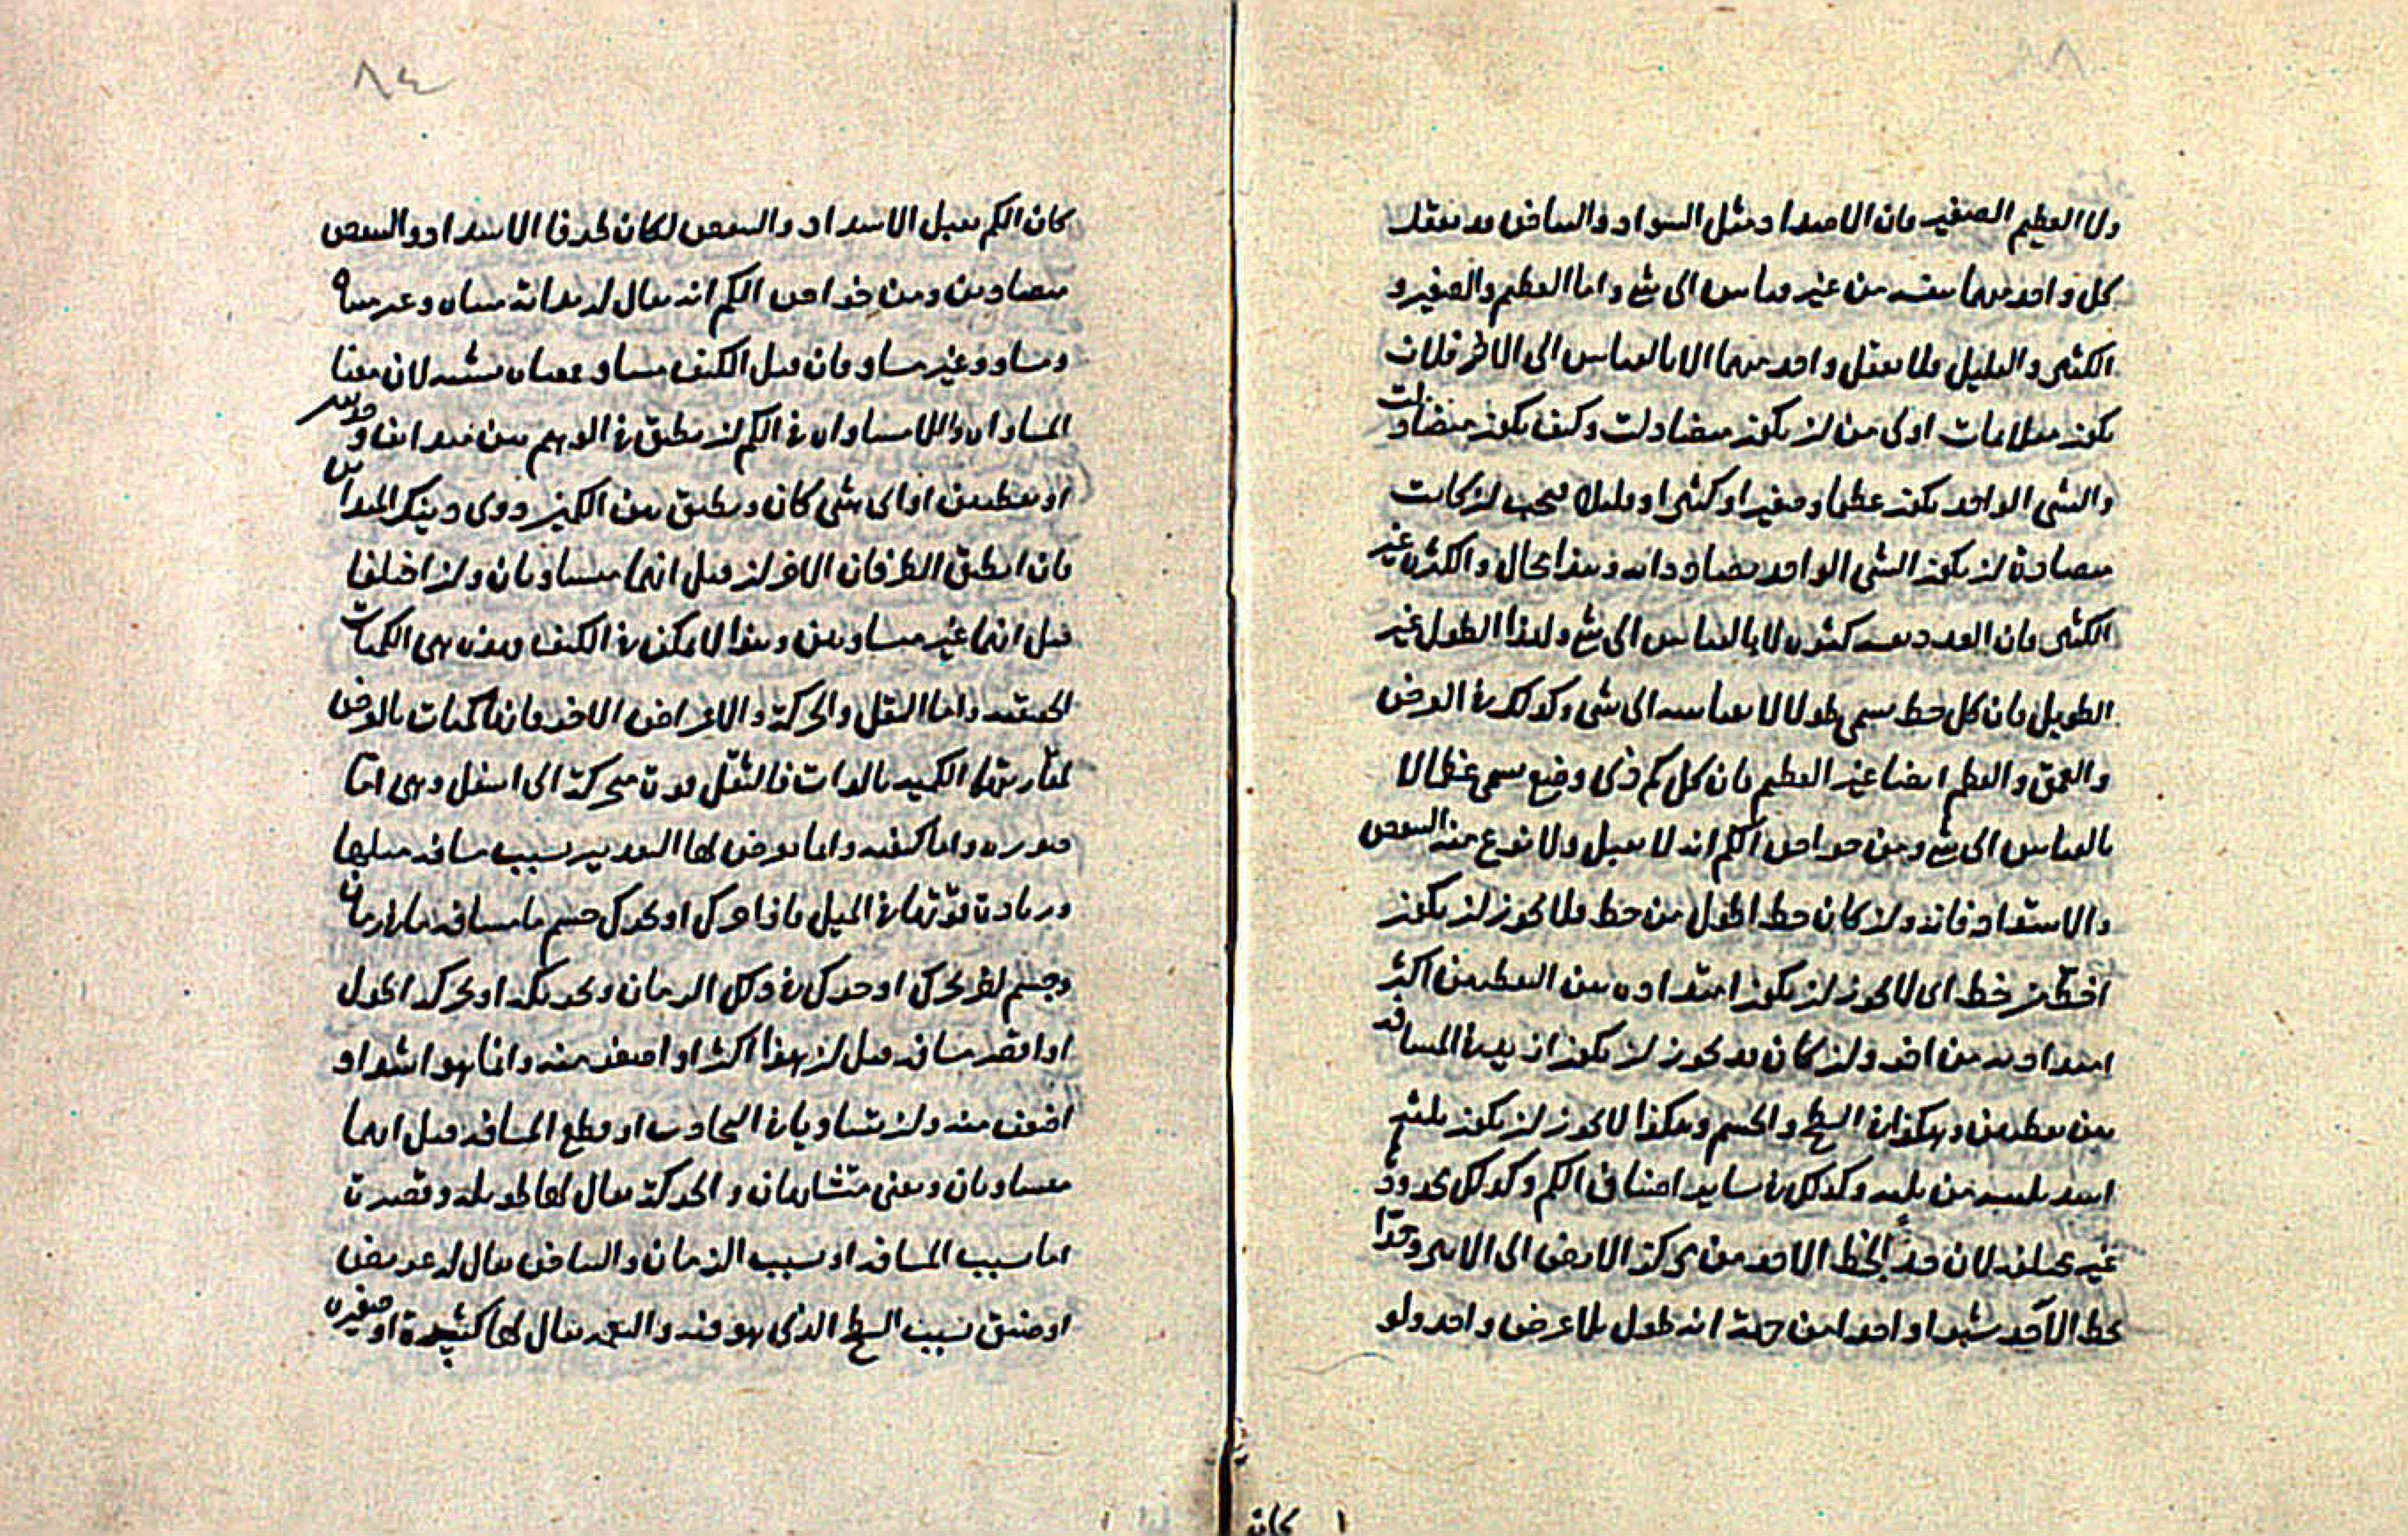 ولا العظيم الصغير فان الاضداد مثل السواد والبياض قد يعقل
كل واحد منهما بنفسه من غير قياس الى شئ واما العظيم والصغير و
الكثير والقليل فلا يعقل واحد منهما الا بالقياس الى الاخر فلان
يكون متلايمات اولى من ان يكون متضادات وكيف يكون متضادات
والشئ الواحد يكون عظيما وصغيرا وكثيرا وقليلا فيجب ان كانت
متضادة ان يكون الشئ الواحد يضاد ذاته وهذا محال والكثرة غير
الكثير فان العدد نفسه كثرة لا بالقياس الى شئ ولهذا الطول غير
الطويل فان كل خط يسمى طولا لا بقياسه الى شئ وكذلك في العرض
والعمق والعظم ايضا غير العظيم فان كل كم ذى وضع يسمى عظما لا
بالقياس الى شئ ومن خواص الكم انه لا يقبل ولا نوع منه التنقص
والاشتداد فانه وان كان خط اطول من خط فلا يجوز ان يكون
اخط من خط اى لا يجوز ان يكون امتداده بين النقطتين اكثر
امتدادية من اخر وان كان قد يجوز ان يكون ازيد في المسافة
بين نقطتين وهكذا في السطح والجسم وهكذا لا يجوز ان يكون ثلثة
اشد ثلثية من ثلثة وكذلك في ساير اصناف الكم وكذلك حدوده
غير مختلفة لان حد الخط الاخذ من مركز الارض الى الاسر وحدا
خط الاخر شبرا واحدا من جهة انه طول بلا عرض واحد ولو
كان
كان الكم يقبل الاشتداد والتنقص لكان طرفا الاشتداد والتنقص
متضادين ومن خواص الكم انه يقال له بذاته متناه وغير متناه
ومساو وغير مساو فان قيل الكيف مساو فمعناه يشبه لان معنا
المساواه واللامساواه في الكم ان يطبق في الوهم بين
او نقطتين او اى شئ كان ويطبق بين الكمين ذوى ذينك المبدأين
فان انطبق الطرفان الاخران قيل انهما متساويان وان اختلفا
قيل انهما غير متساويين وهذا لا يمكن في الكيف وهذه هى الكميات
الحقيقية واما الثقل والحركة والاعراض الاخر فانها كميات بالعرض
لمقارنتها الكمية بالذات فالثقل قوة محركة الى اسفل وهى اما
صورة واما كيفية وانما يعرض لها التقدير بسبب مسافة ميلها
وزيادة قوتها في الميل فاذا حرك او تحرك جسم ما مسافة ما في زمان
وجسم اخر تحرك او حرك في ذلك الزمان وتحريكه او تحركه اطول
او اقصر مسافة قيل ان هذا اكثر او اضعف منه وانما هو اشد او
اضعف منه وان تساويا في التجاذب او قطع المسافة قيل انهما
متساويان ويعنى متشابهان والحركة يقال لها طويلة وقصيرة
اما بسبب المسافة او بسبب الزمان والبياض يقال له عريض
او ضيق بسبب السطح الذى هو فيه والبقعة يقال لها كثيرة او صغيرة